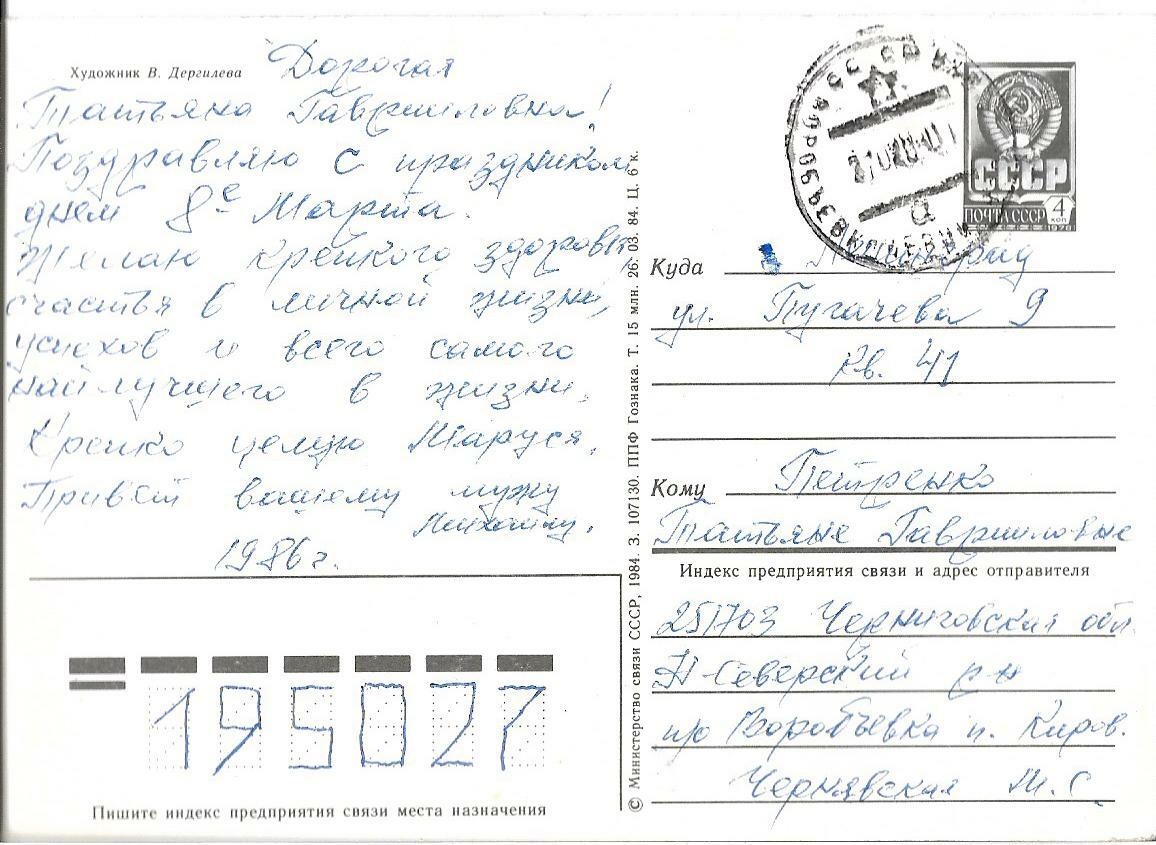 Художник В. Дергилева
Дорогая
Татьяна Гавриловна!
Поздравляю с праздником
днем 8е Марта.
Желаю крепкого здоровья,
счастья в личной жизни,
успехов и всего самого
найлучшего в жизни.
Крепко целую Маруся.
Привет вашему мужу
Михаилу.
1986 г.
195027
Пишите индекс предприятия связи места назначения
© Министерство связи СССР, 1984. З. 107130. ППФ Гознака. Т. 15 млн. 26. 03. 84. Ц. 6 к.
СССР
ПОЧТА СССР 4 КОП
1976
Куда Ленинград
ул. Пугачева 9
кв. 41
Кому Петренко
Татьяне Гавриловне
Индекс предприятия связи и адрес отправителя
251703 Черниговская обл.
Н-Северский р-н
п/о Воробьевка п. Киров.
Чернявская М. С.